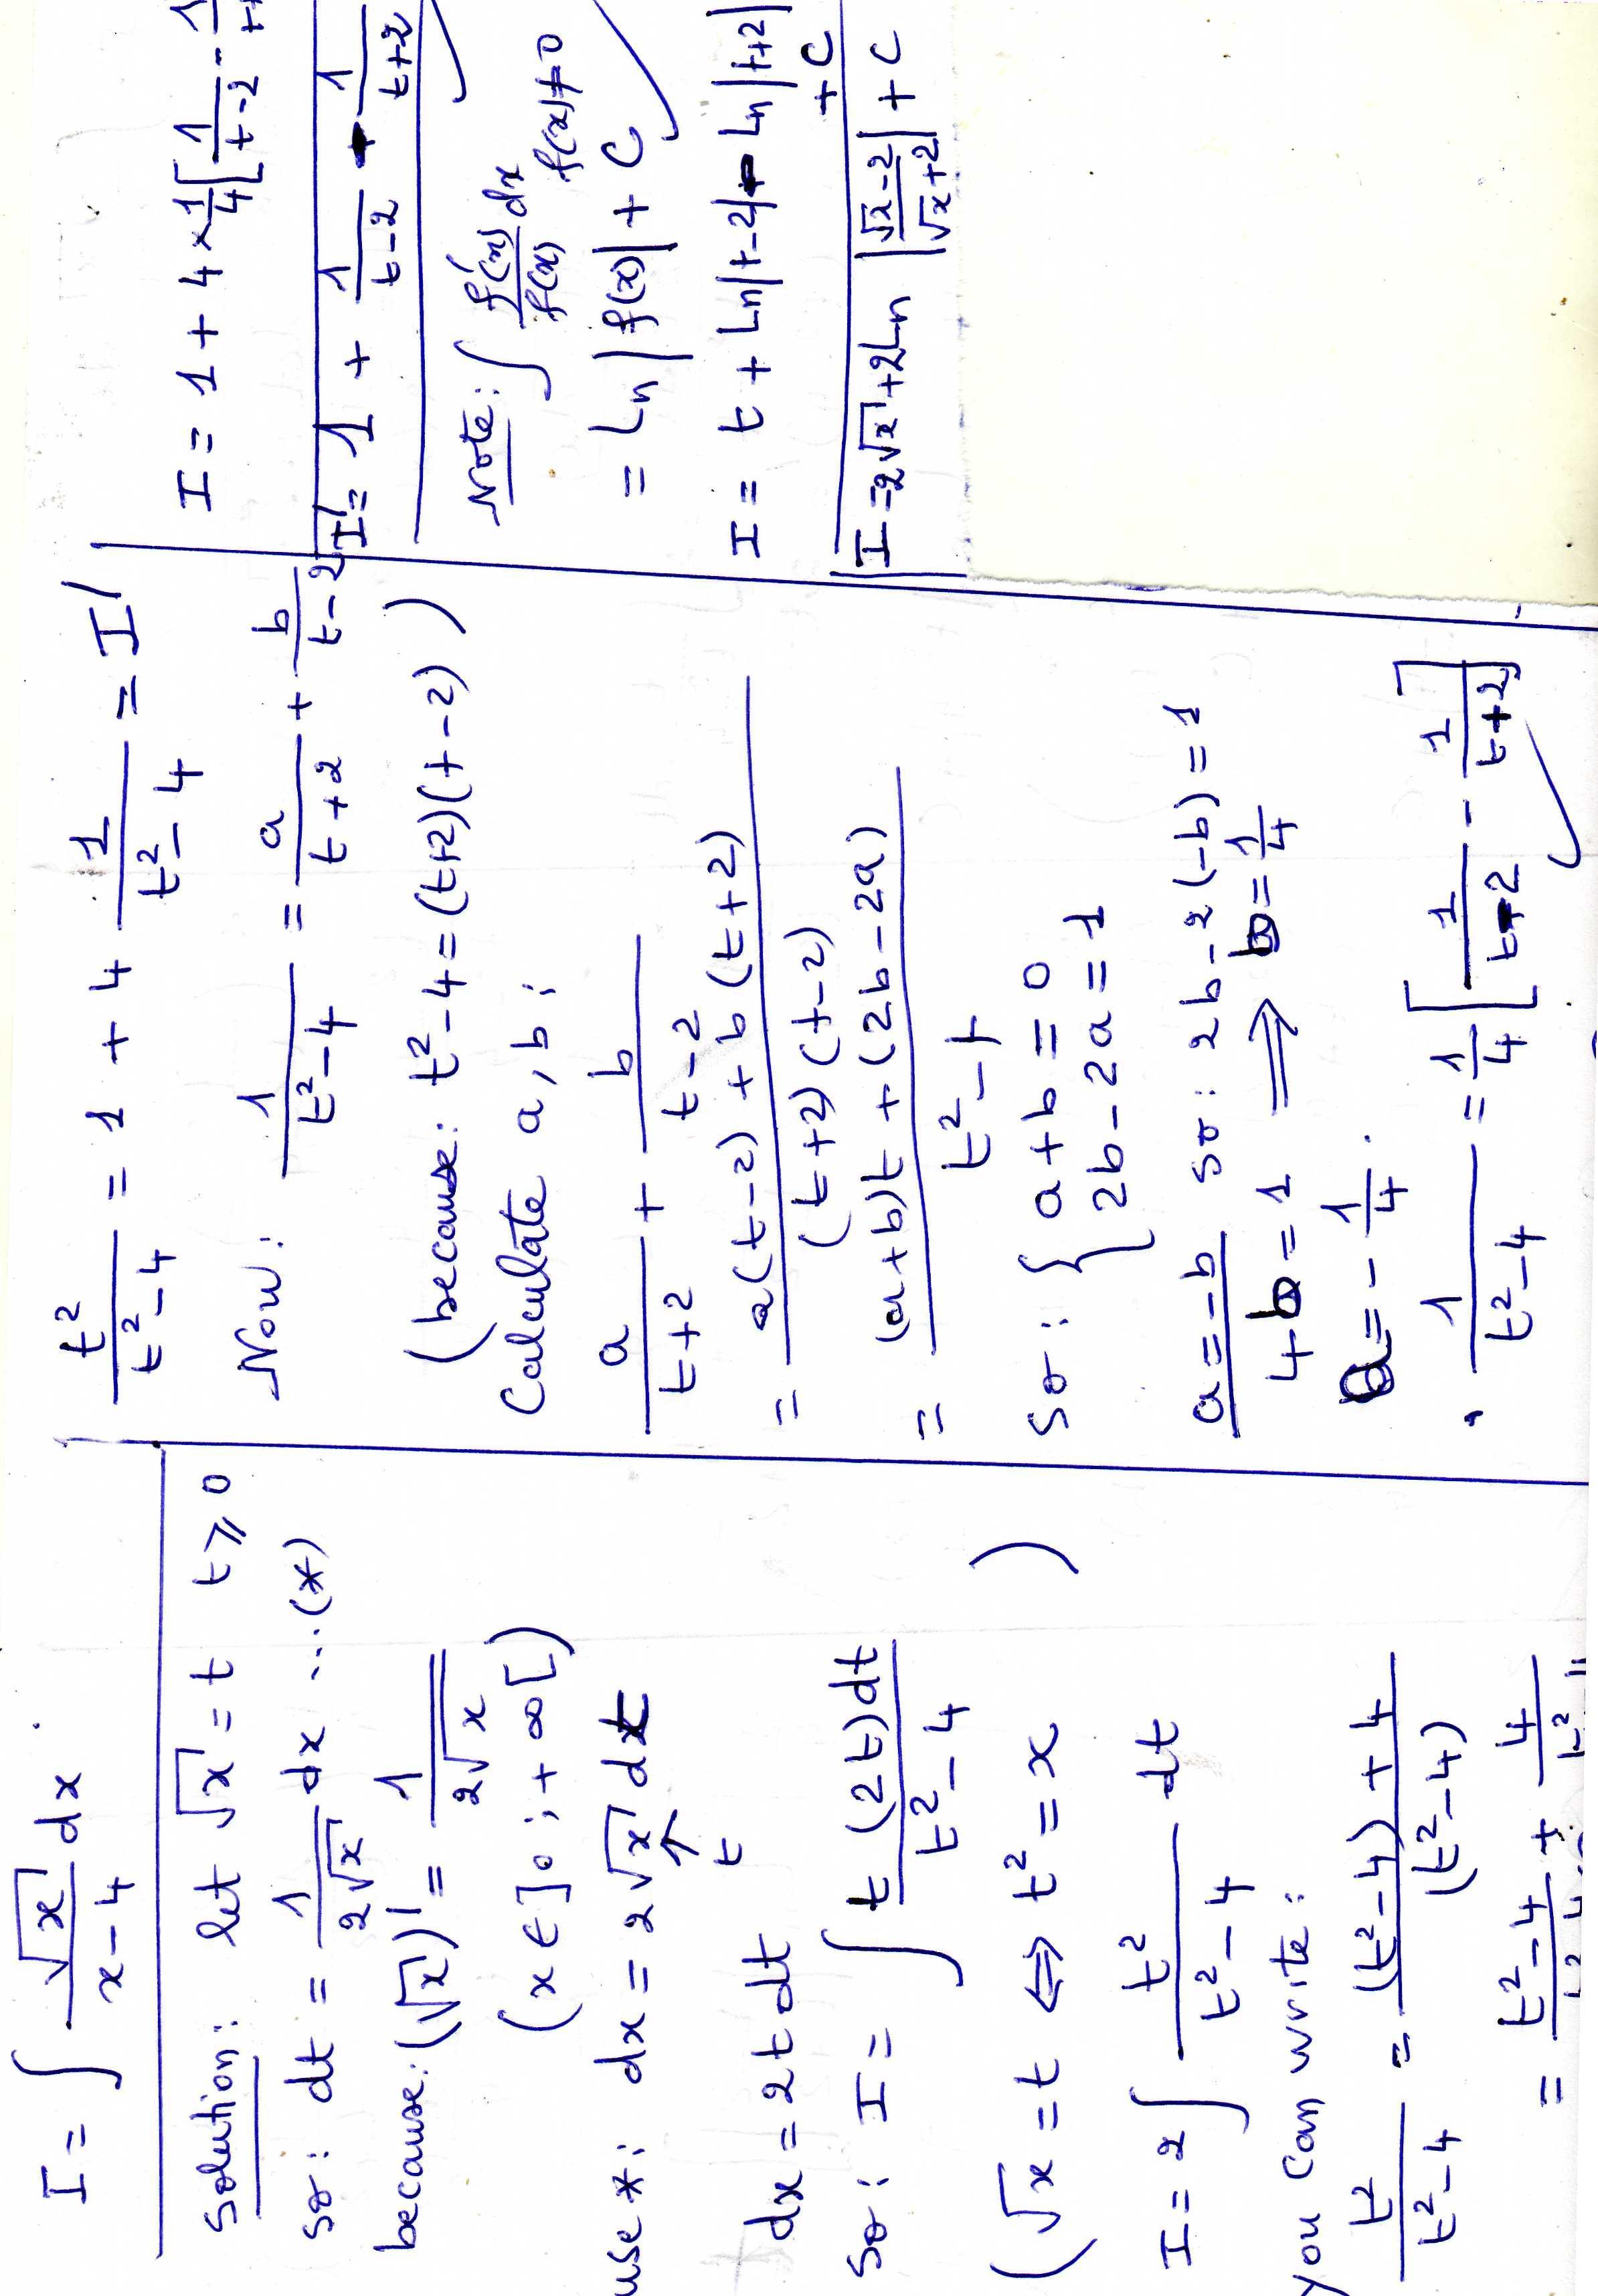 I = ∫ √x / (x-4) dx
Solution: let √x = t   t ⩾ 0
so: dt = 1/(2√x) dx ...(*)
because: (√x)' = 1/(2√x)
(x ∈ ]0; +∞[)
use *: dx = 2√x dt
↑
t
dx = 2t dt
so: I = ∫ t (2t)dt / (t²-4)
(√x = t ⇔ t² = x )
I = 2 ∫ t²/(t²-4) dt
you can write:
t²/(t²-4) = ((t²-4)+4)/(t²-4)
= (t²-4)/(t²-4) + 4/t²
t²/(t²-4) = 1 + 4 1/(t²-4) = I'
Now: 1/(t²-4) = a/(t+2) + b/(t-2)
(because: t²-4 = (t+2)(t-2) )
Calculate a, b:
a/(t+2) + b/(t-2)
= (a(t-2) + b(t+2)) / ((t+2)(t-2))
= ((a+b)t + (2b-2a)) / (t²-4)
so: { a+b = 0
2b-2a = 1
a = -b   so: 2b-2(-b) = 1
4b = 1 ⟹ b = 1/4
a = -1/4.
. 1/(t²-4) = 1/4 [1/(t-2) - 1/(t+2)]
I = 1 + 4 × 1/4 [1/(t-2) - 1/
I' = 1 + 1/(t-2) - 1/(t+2)
Note: ∫ f'(x)/f(x) dx   f(x) ≠ 0
= Ln|f(x)| + C
I = t + Ln|t-2| - Ln|t+2|
+C
I = 2√x + 2Ln |(√x-2)/(√x+2)| + C